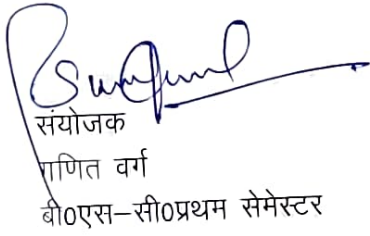 संयोजक
गणित वर्ग
बी0एस–सी0प्रथम सेमेस्टर